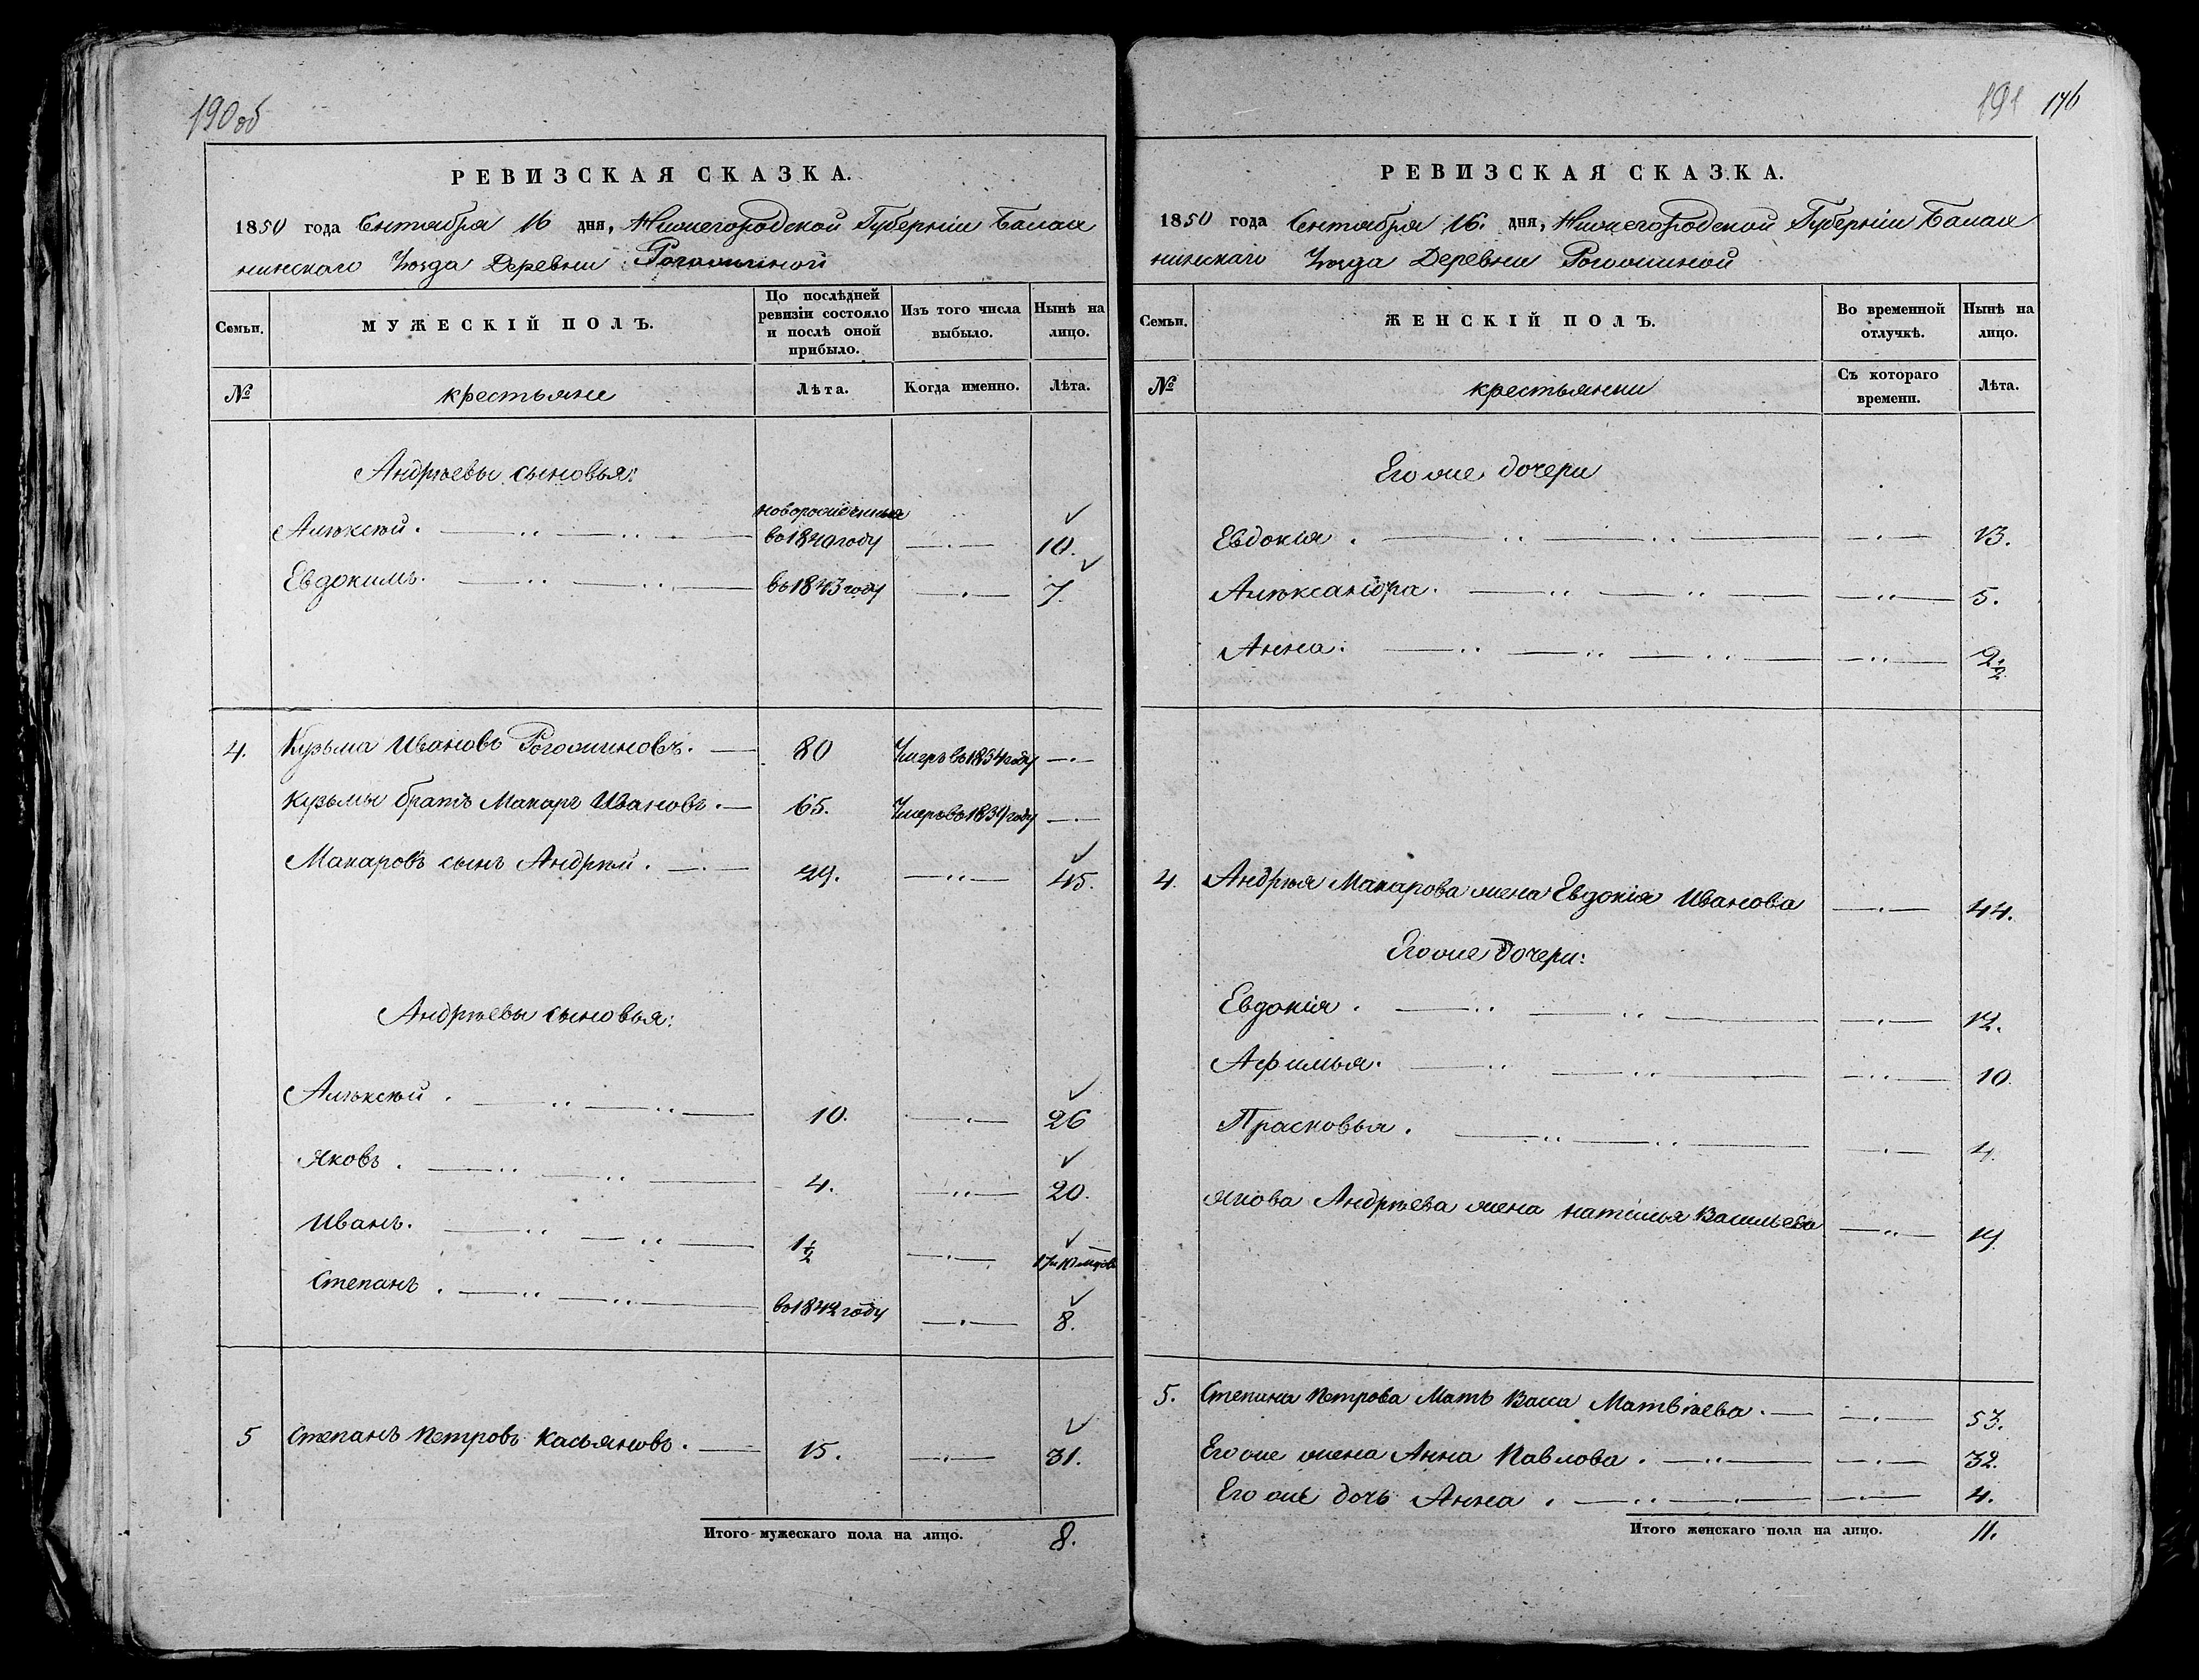 190 об
РЕВИЗСКАЯ СКАЗКА.
1850 года Сентября 16 дня, Нижегородской Губерніи Балах
нинскаго Уѣзда Деревни Рогожиной
Семьи.
МУЖЕСКІЙ ПОЛЪ.
По послѣдней ревизіи состояло и послѣ оной прибыло.
Изъ того числа выбыло.
Нынѣ на лицо.
№
крестьяне
Лѣта.
Когда именно.
Лѣта.
Андрѣевы сыновья:
новорожденныя
Алѣксѣй. во 1840 году 10.
Евдокимъ. въ 1843 году 7.
4. Кузьма Ивановъ Рогожиновъ. 80 Умеръ въ 1834 году
Кузьмы братъ Макаръ Ивановъ. 65. Умеръ въ 1834 году
Макаровъ сынъ Андрѣй. 29. 45.
Андрѣевы сыновья:
Алѣксѣй. 10. 26
Яковъ. 4. 20.
Иванъ. 1½ 17 и 10 мѣсев
Степанъ. во 1842 году 8.
5 Степанъ Петровъ Касьяновъ. 15. 31.
Итого мужескаго пола на лицо. 8.
191 176
РЕВИЗСКАЯ СКАЗКА.
1850 года Сентября 16. дня, Нижегородской Губерніи Балах
нинскаго Уѣзда Деревни Рогожиной
Семьи.
ЖЕНСКІЙ ПОЛЪ.
Во временной отлучкѣ.
Нынѣ на лицо.
№
крестьянки
Съ котораго времени.
Лѣта.
Его же дочери
Евдокія. 13.
Алѣксандра. 5.
Анна. 2½
4. Андрѣя Макарова жена Евдокія Иванова 44.
Его же дочери:
Евдокія. 12.
Афимья. 10.
Прасковья. 4.
Якова Андрѣева жена наталья Васильева 19.
5. Степана Петрова Мать Васса Матвѣева. 53.
Его же жена Анна Павлова. 32.
Его же дочь Анна. 4.
Итого женскаго пола на лицо. 11.